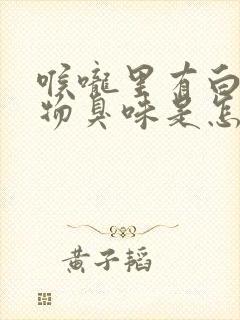 喉咙里有白
物臭味是怎
黄子韬